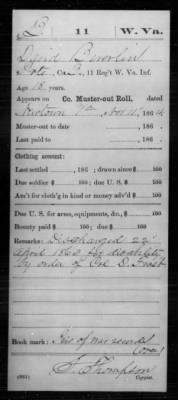 B | 11 | W. Va.
Bowlin
Co. B, 11 Reg't W. Va. Inf.
Age 18 years.
Appears on Co. Muster-out Roll, dated
Newtown Va Nov 11, 1864
Muster-out to date , 186 .
Last paid to , 186 .
Clothing account:
Last settled , 186 ; drawn since $ 100
Due soldier $ 100; due U. S. $ 100
Am't for cloth'g in kind or money adv'd $ 100
Due U. S. for arms, equipments, &c., $ 100
Bounty paid $ 100; due $ 100
Remarks: Discharged 22d
April 1863 for disability
by order of Col D. Frost
Book mark:
S. Thompson
(861) Copyist.